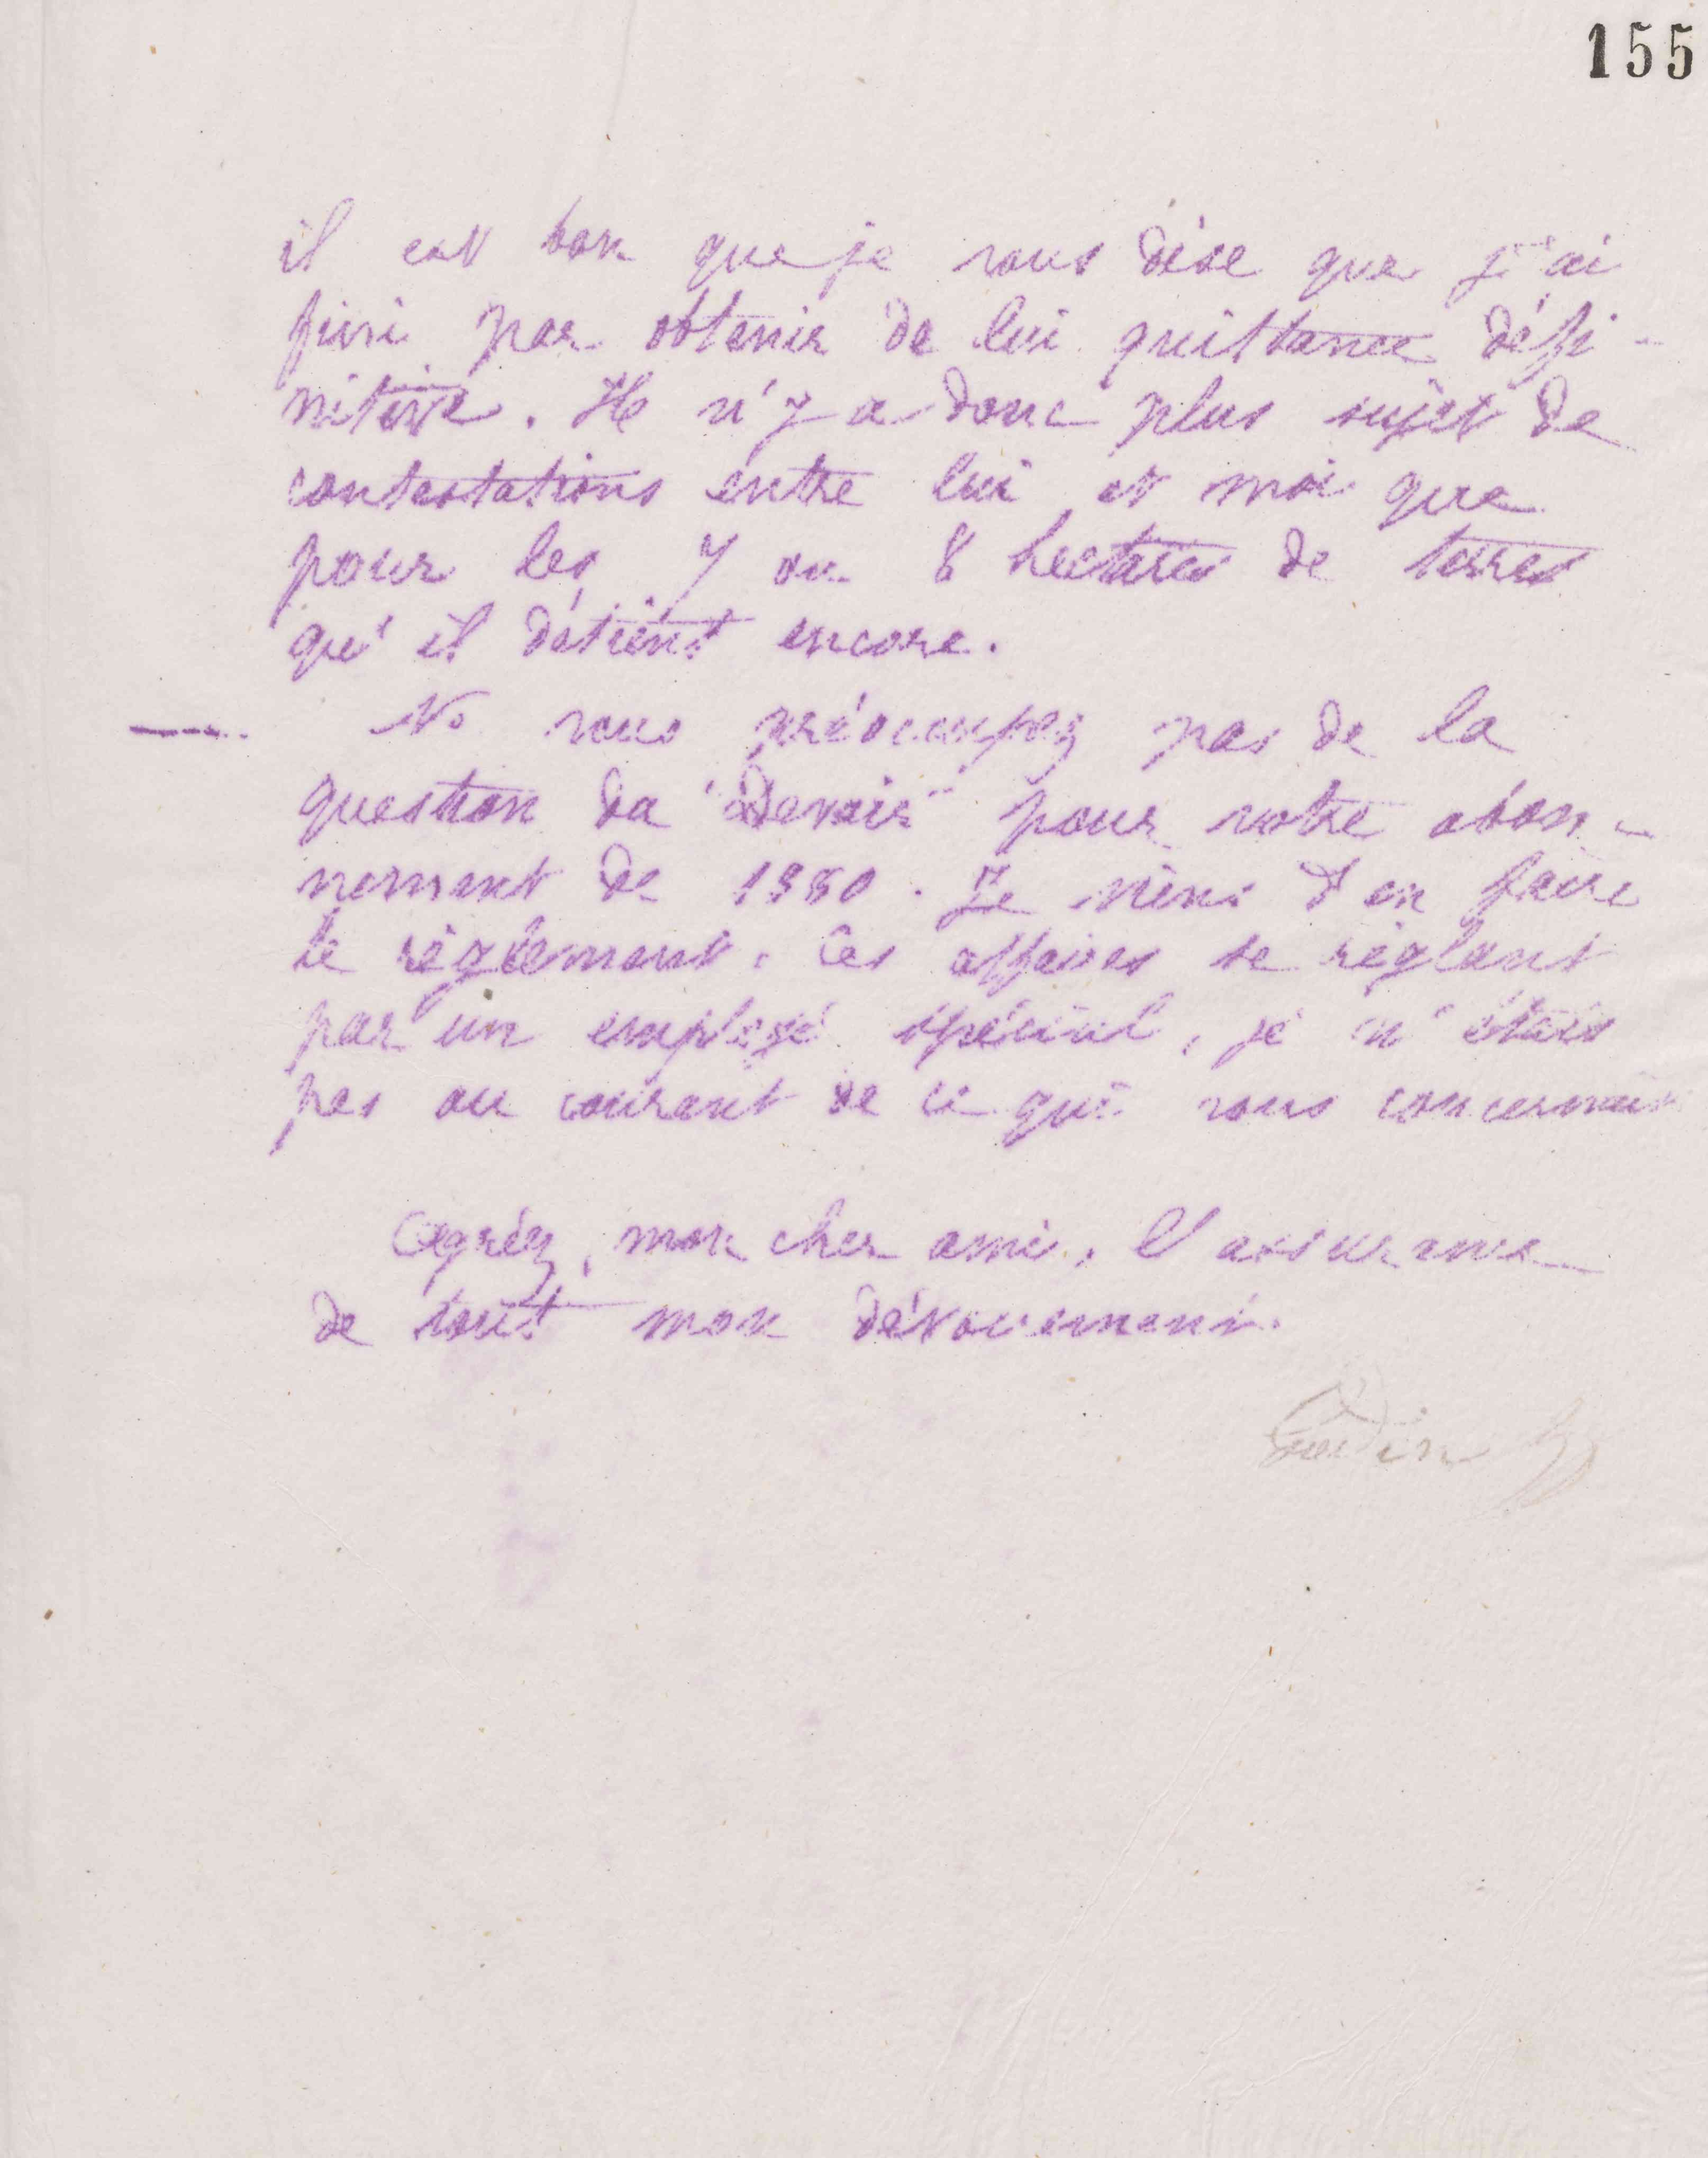 155
il est bon que je vous dise que j'ai
fini par obtenir de lui quittance défi-
nitive. Il n'y a donc plus sujet de
contestations entre lui et moi que
pour les 7 ou 8 hectares de terres
qu'il détient encore.
Ne vous préoccupez pas de la
question du "Devoir" pour votre abon-
nement de 1880. Je viens d'en faire
le règlement. Ces affaires se réglant
par un employé spécial, je n'étais
pas au courant de ce qui vous concernait
Agréez, mon cher ami, l'assurance
de tout mon dévouement.
Godin